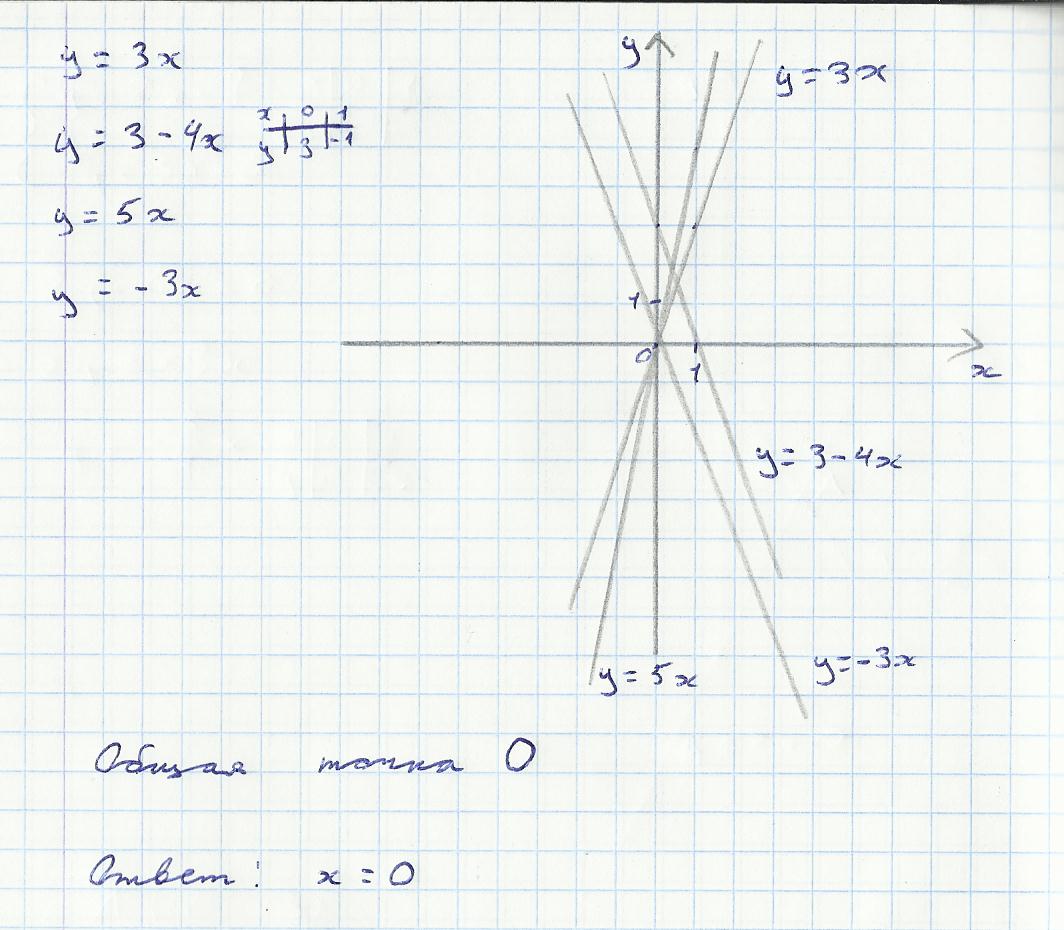 y = 3x
y = 3 - 4x
x 0 1
y 3 -1
y = 5x
y = -3x
y
y = 3x
1
0
1
x
y = 3 - 4x
y = -3x
y = 5x
Общая точка 0
Ответ: x = 0